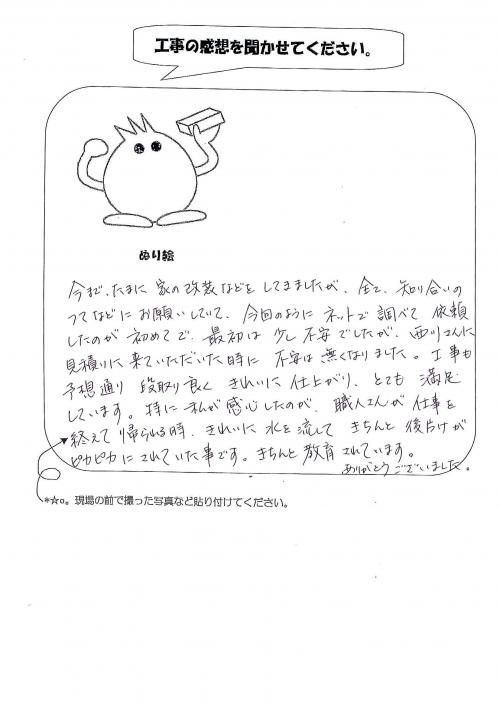 工事の感想を聞かせてください。
ぬり絵
今まで、たまに家の改装などをしてましたが、全て、知り合いの
つてなどにお願いしていて、今回のようにネットで調べて依頼
したのが初めてで、最初は少し不安でしたが、西川さんに
見積りに来ていただいた時に不安は無くなりました。工事も
予想通り段取り良くきれいに仕上がり、とても満足
しています。特に私が感心したのが、職人さんが仕事を
終えて帰られる時、きれいに水を流してきちんと後片けが
ピカピカにされていた事です。きちんと教育されています。
ありがとうございました。
*☆○。現場の前で撮った写真など貼り付けてください。